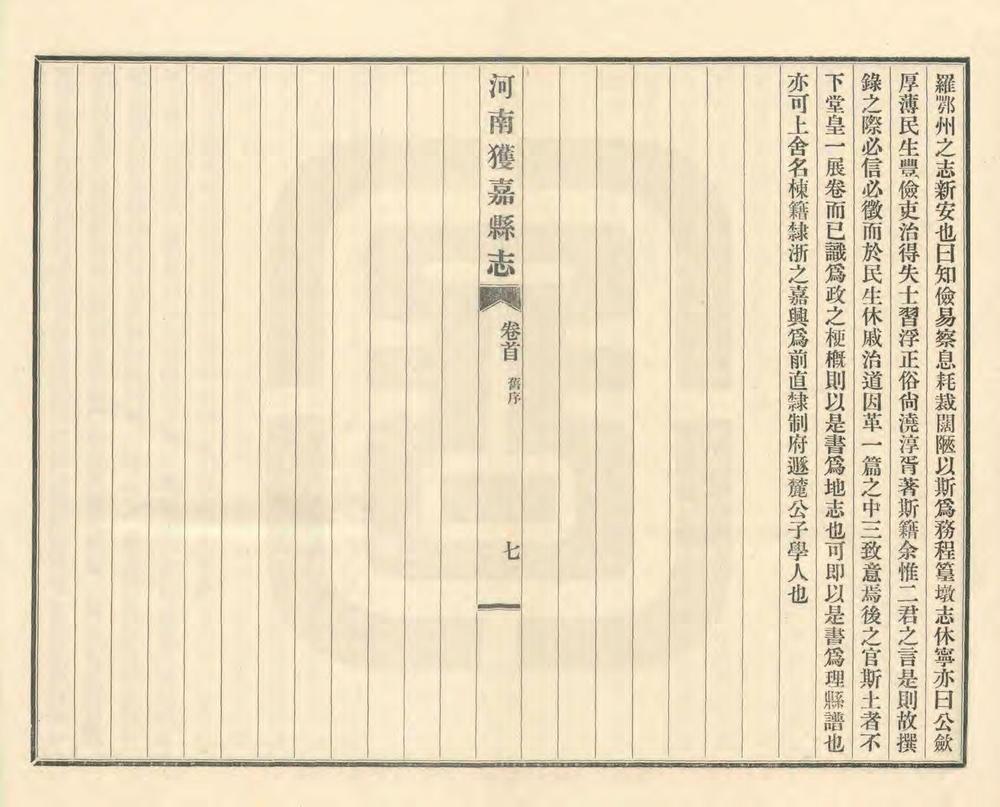 羅鄂州之志新安也曰知儉易察息耗裁闊陿以斯爲務程篁墩志休寧亦曰公歛
厚薄民生豐儉吏治得失士習浮正俗尙澆淳胥著斯籍余惟二君之言是則故撰
錄之際必信必徵而於民生休戚治道因革一篇之中三致意焉後之官斯土者不
下堂皇一展卷而已識爲政之梗槪則以是書爲地志也可即以是書爲理縣譜也
亦可上舍名棟籍隸浙之嘉興爲前直隸制府遯麓公子學人也
河南獲嘉縣志
卷首
舊序
七